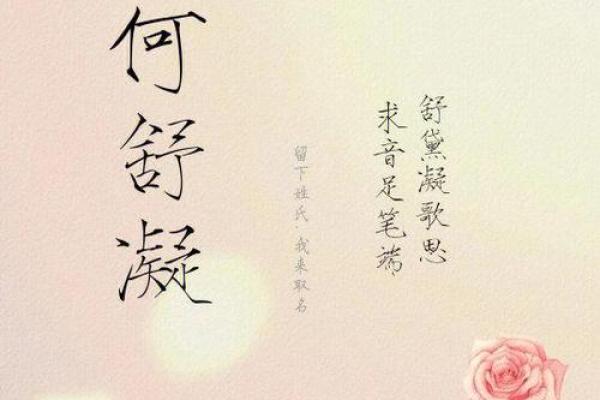 何舒凝
舒黛凝歌思
求音足笔端
留下姓氏·我来取名